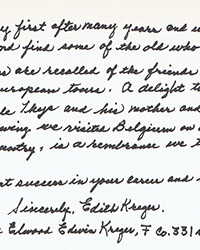 y first after many years and w
ord find some of the old who
are recalled of the friends
uropean tours. A delight to
le Ikeys and his mother and
aving we visited Belgium on
ountry, is a rembrance we t
at success in your career and
Sincerely, Edith Kreger.
Elwood Edwin Kreger, F Co. 331